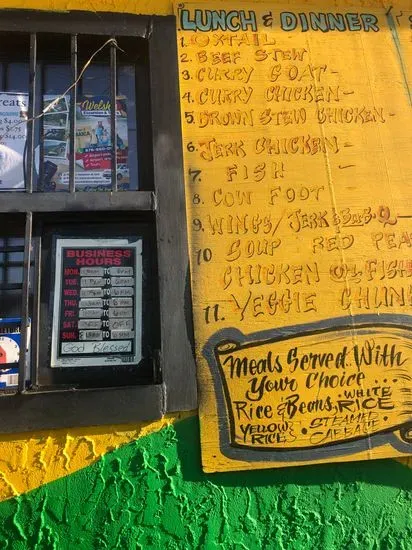 LUNCH & DINNER
1. OXTAIL
2. BEEF STEW
3. CURRY GOAT -
4. CURRY CHICKEN -
5. BROWN STEW CHICKEN -
6. JERK CHICKEN -
7. FISH -
8. COW FOOT
9. WINGS/JERK & B-B-Q -
10 SOUP RED PEA
CHICKEN OR FISH
11. VEGGIE CHUN
Meals Served With
Your Choice
Rice & Beans, WHITE RICE
YELLOW RICE & STEAMED CABBAGE
Welsh
BUSINESS HOURS
MON. TO
TUE. TO
WED. TO
THU. TO
FRI. TO
SAT. OFF TO OFF
SUN. TO
God Blessed